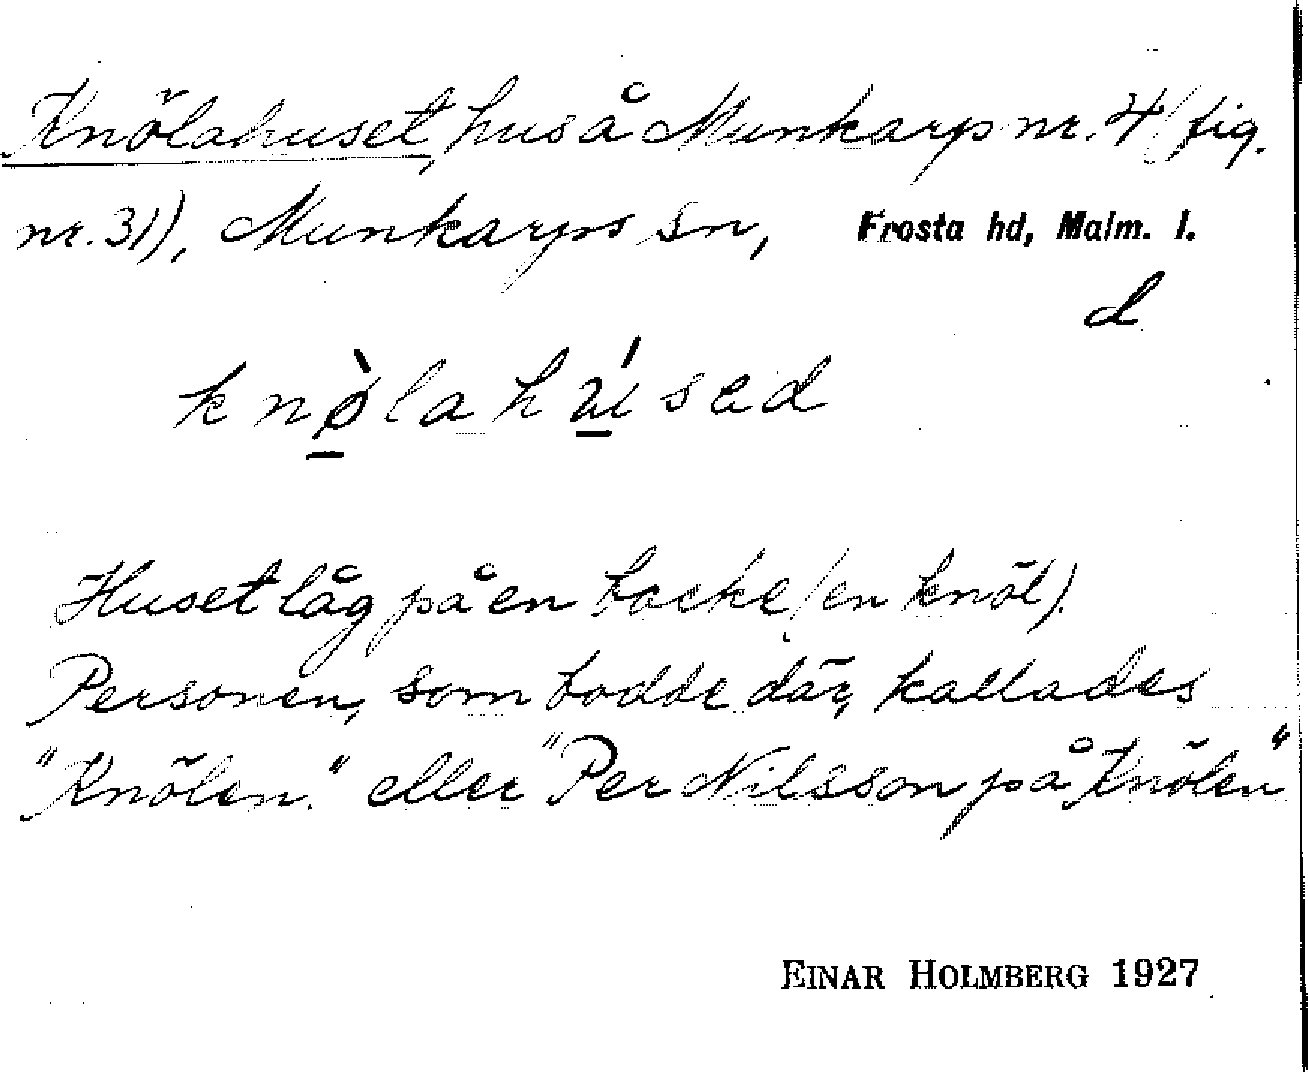 Knölahuset, hus å Munkarp nr. 4 (fig.
nr. 31), Munkarps sn, Frosta hd, Malm. l.
d
knø̀lahúsəd
Huset låg på en backe (en knöl).
Personen, som bodde där, kallades
"Knölen." eller "Per Nilsson på Knölen"
EINAR HOLMBERG 1927